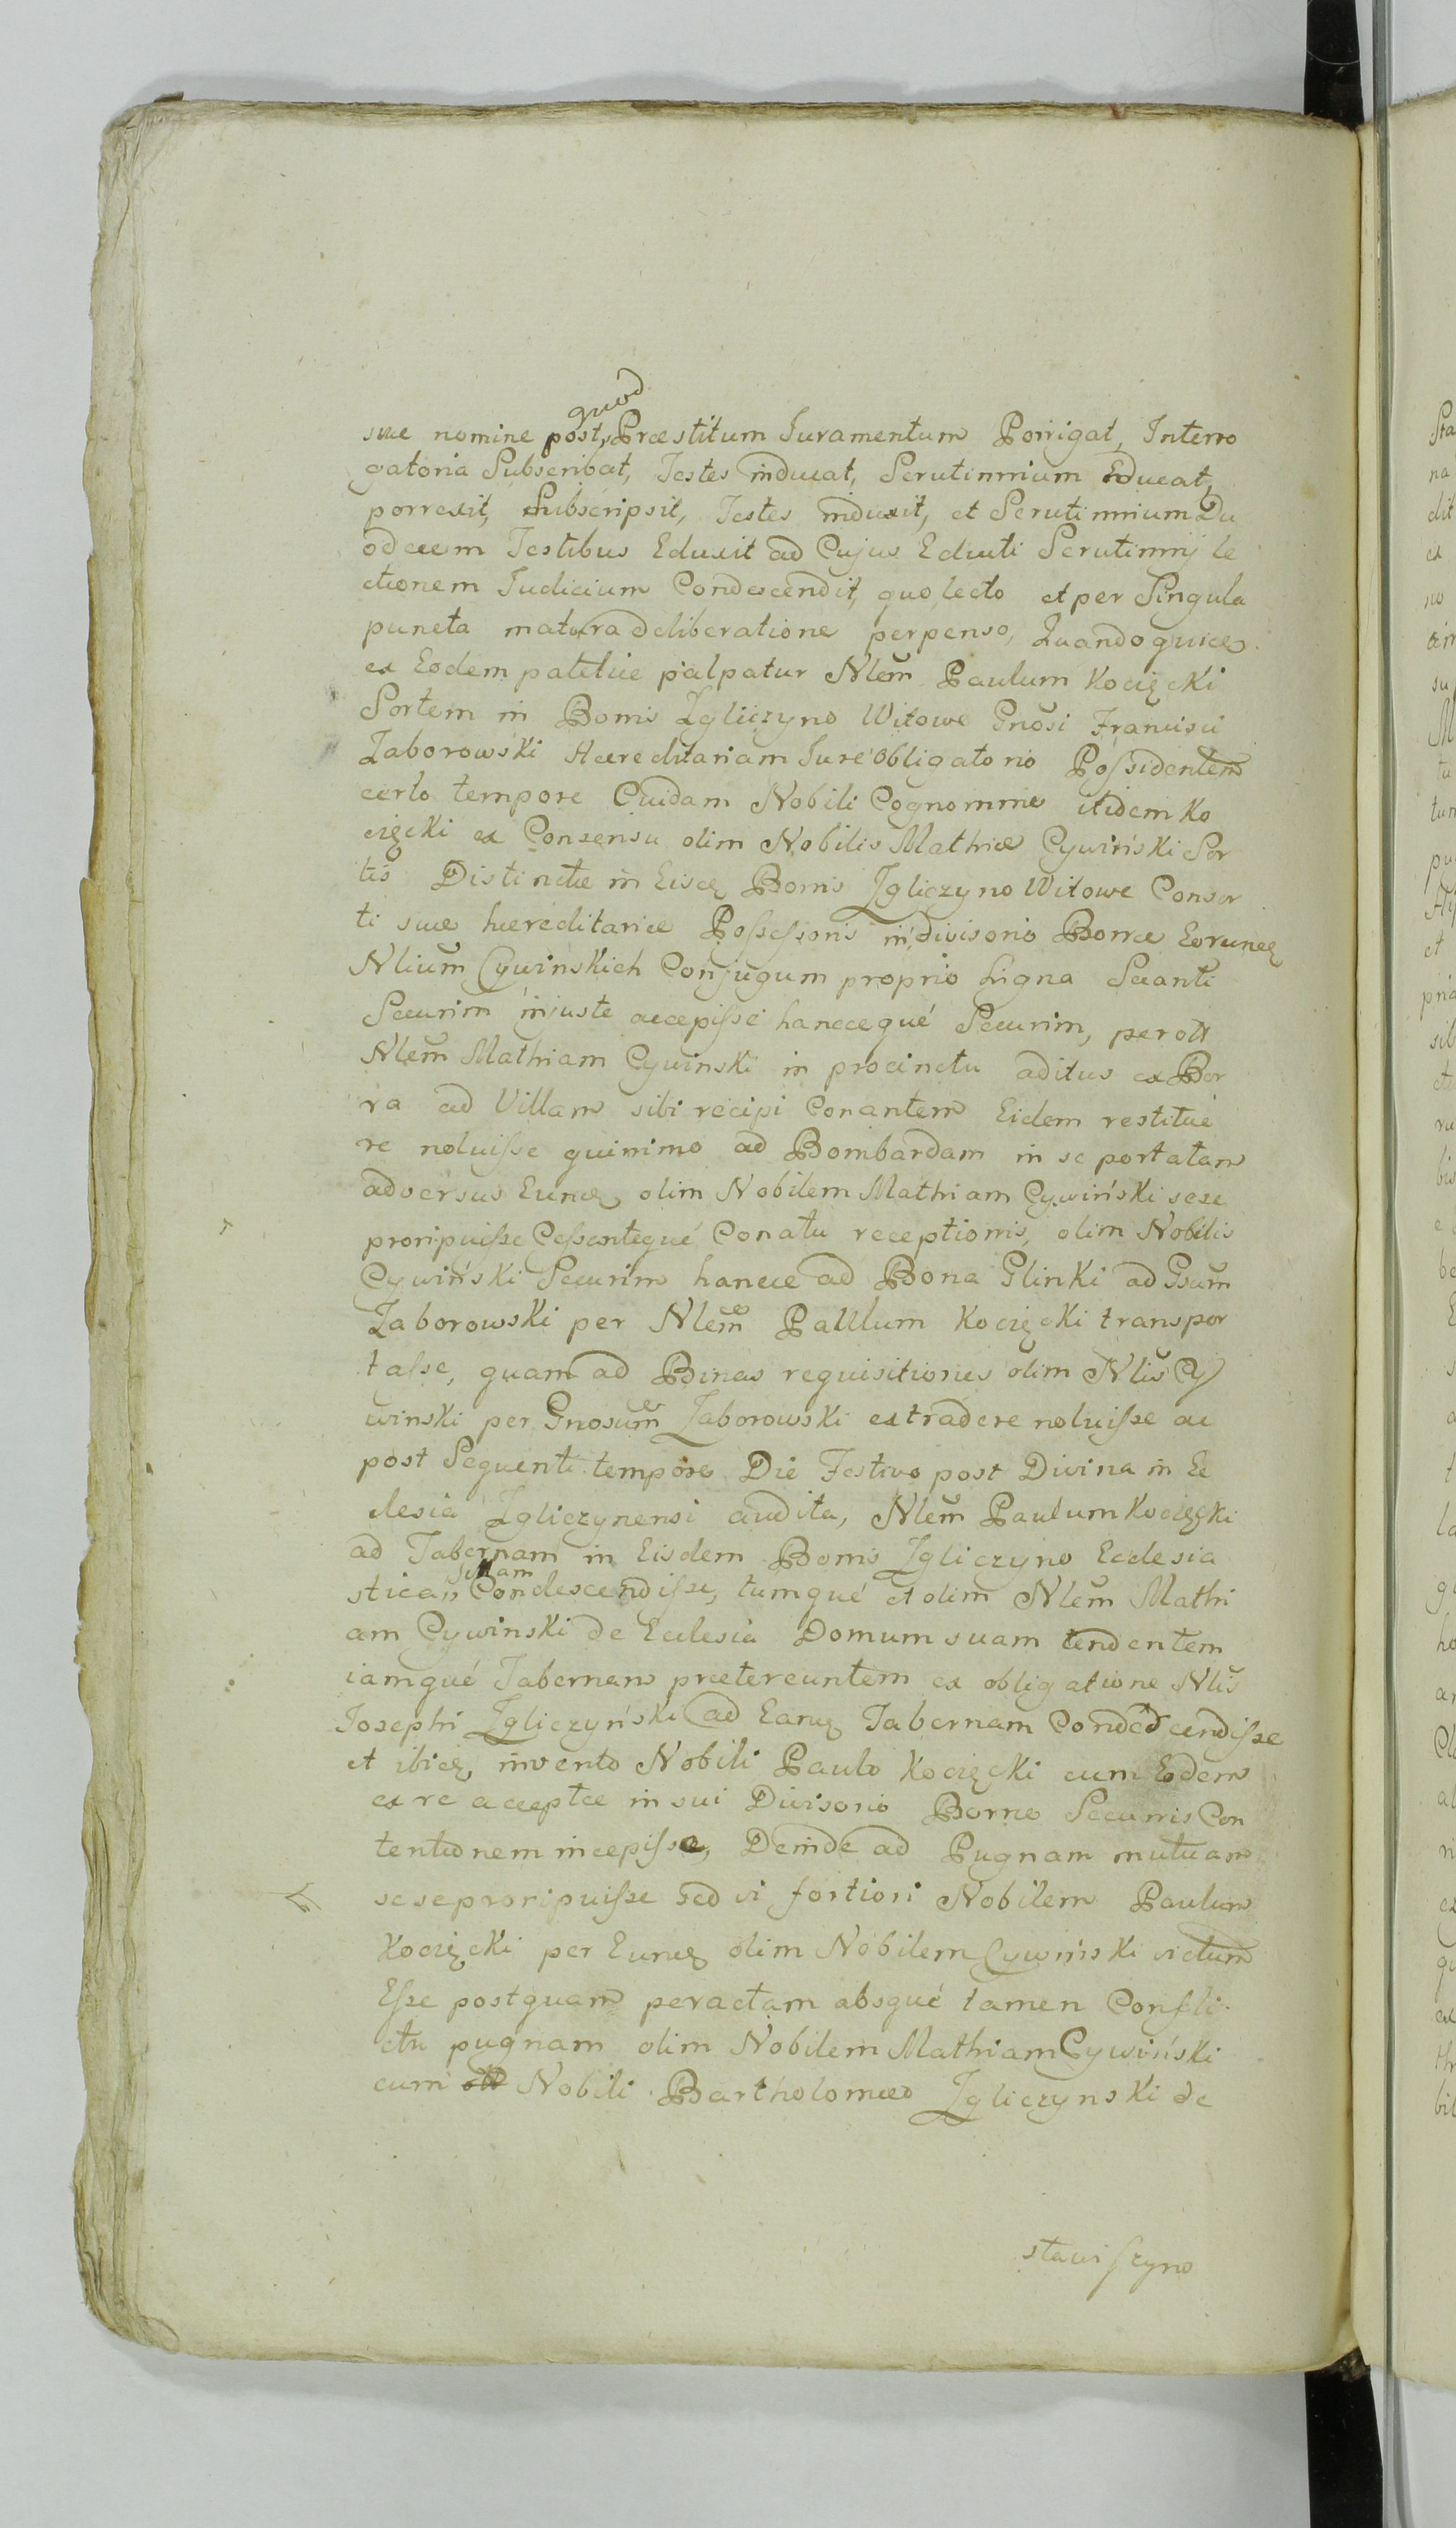 quod
suæ nomine post, Præstitum Juramentum Porrigat, Interro
gatoria Subscribat, Testes inducat, Scrutinnium Educat,
porrexit, Subscripsit, Testes induxit, et Scrutinnium Du
odecem Testibus Eduxit ad Cujus Educti Scrutinnij le
ctionem Judicium Condescendit, quo lecto et per Singula
puncta matura deliberatione perpenso, Quandoquidem
ex Eodem patetúe palpatur Nlem Paulum Kocięcki
Sortem in Bonis Zgliczyno Witowe Gnosi Francisci
Zaborowski Hæreditariam Jure Obligatorio Poſsidentem
certo tempore Cuidam Nobili Cognomine itidem Ko
cięcki ex Consensu olim Nobilis Mathiæ Cywiński Sor
tis Distinctæ in Eisdem Bonis Zgliczyno Witowe Consor
ti suæ hæreditariæ Poſseſsoris in divisorio Borræ Eorundem
Nlium Cywinskich Conjugum proprio Ligna Secanti
Securim injuste accepiſse hanccequé Securim, per olt
Nlem Mathiam Cywinski in procinctu aditus ex Bor
ra ad Villam sibi recipi Conantem Eidem restitue
re noluiſse quinimo ad Bombardam in se portatam
adversus Eundem olim Nobilem Mathiam Cywiński sese
proripuiſse Ceſsantequé Conatu receptionis, olim Nobilis
Cywiński Securim hancce ad Bona Glinki ad Gsum
Zaborowski per Nlem Paulum Kocięcki transpor
taſse, quam ad Binas requisitiones olim Nlis Cy
winski per Gnosum Zaborowski extradere noluiſse ac
post Sequenti tempore Die Festivo post Divina in Ec
clesia Zgliczynensi audita, Nlem Paulum Kocięcki
ad Tabernam in Eisdem Bonis Zgliczyno Ecclesia
sitam
stica, Condescendiſse, tumqué et olim Nlem Mathi
am Cywinski de Ecclesia Domum suam tendentem
iamqué Tabernam prætereuntem ex obligatione Nlis
Josephi Zgliczyński ad Eandem Tabernam Condescendiſse
et ibidem invento Nobili Paulo Kocięcki cum Eodem
ex re acceptæ in sui Divisorio Borræ Securis Con
tentionem incepiſse, Deinde ad Pugnam mutuam
sese proripuiſse sed vi fortiori Nobilem Paulum
Kocięcki per Eundem olim Nobilem Cywiński victum
Eſse postquam peractam absqué tamen Confli
ctu pugnam olim Nobilem Mathiam Cywiński
cum Nobili Bartholomæo Zgliczynski de
stawiſzyno